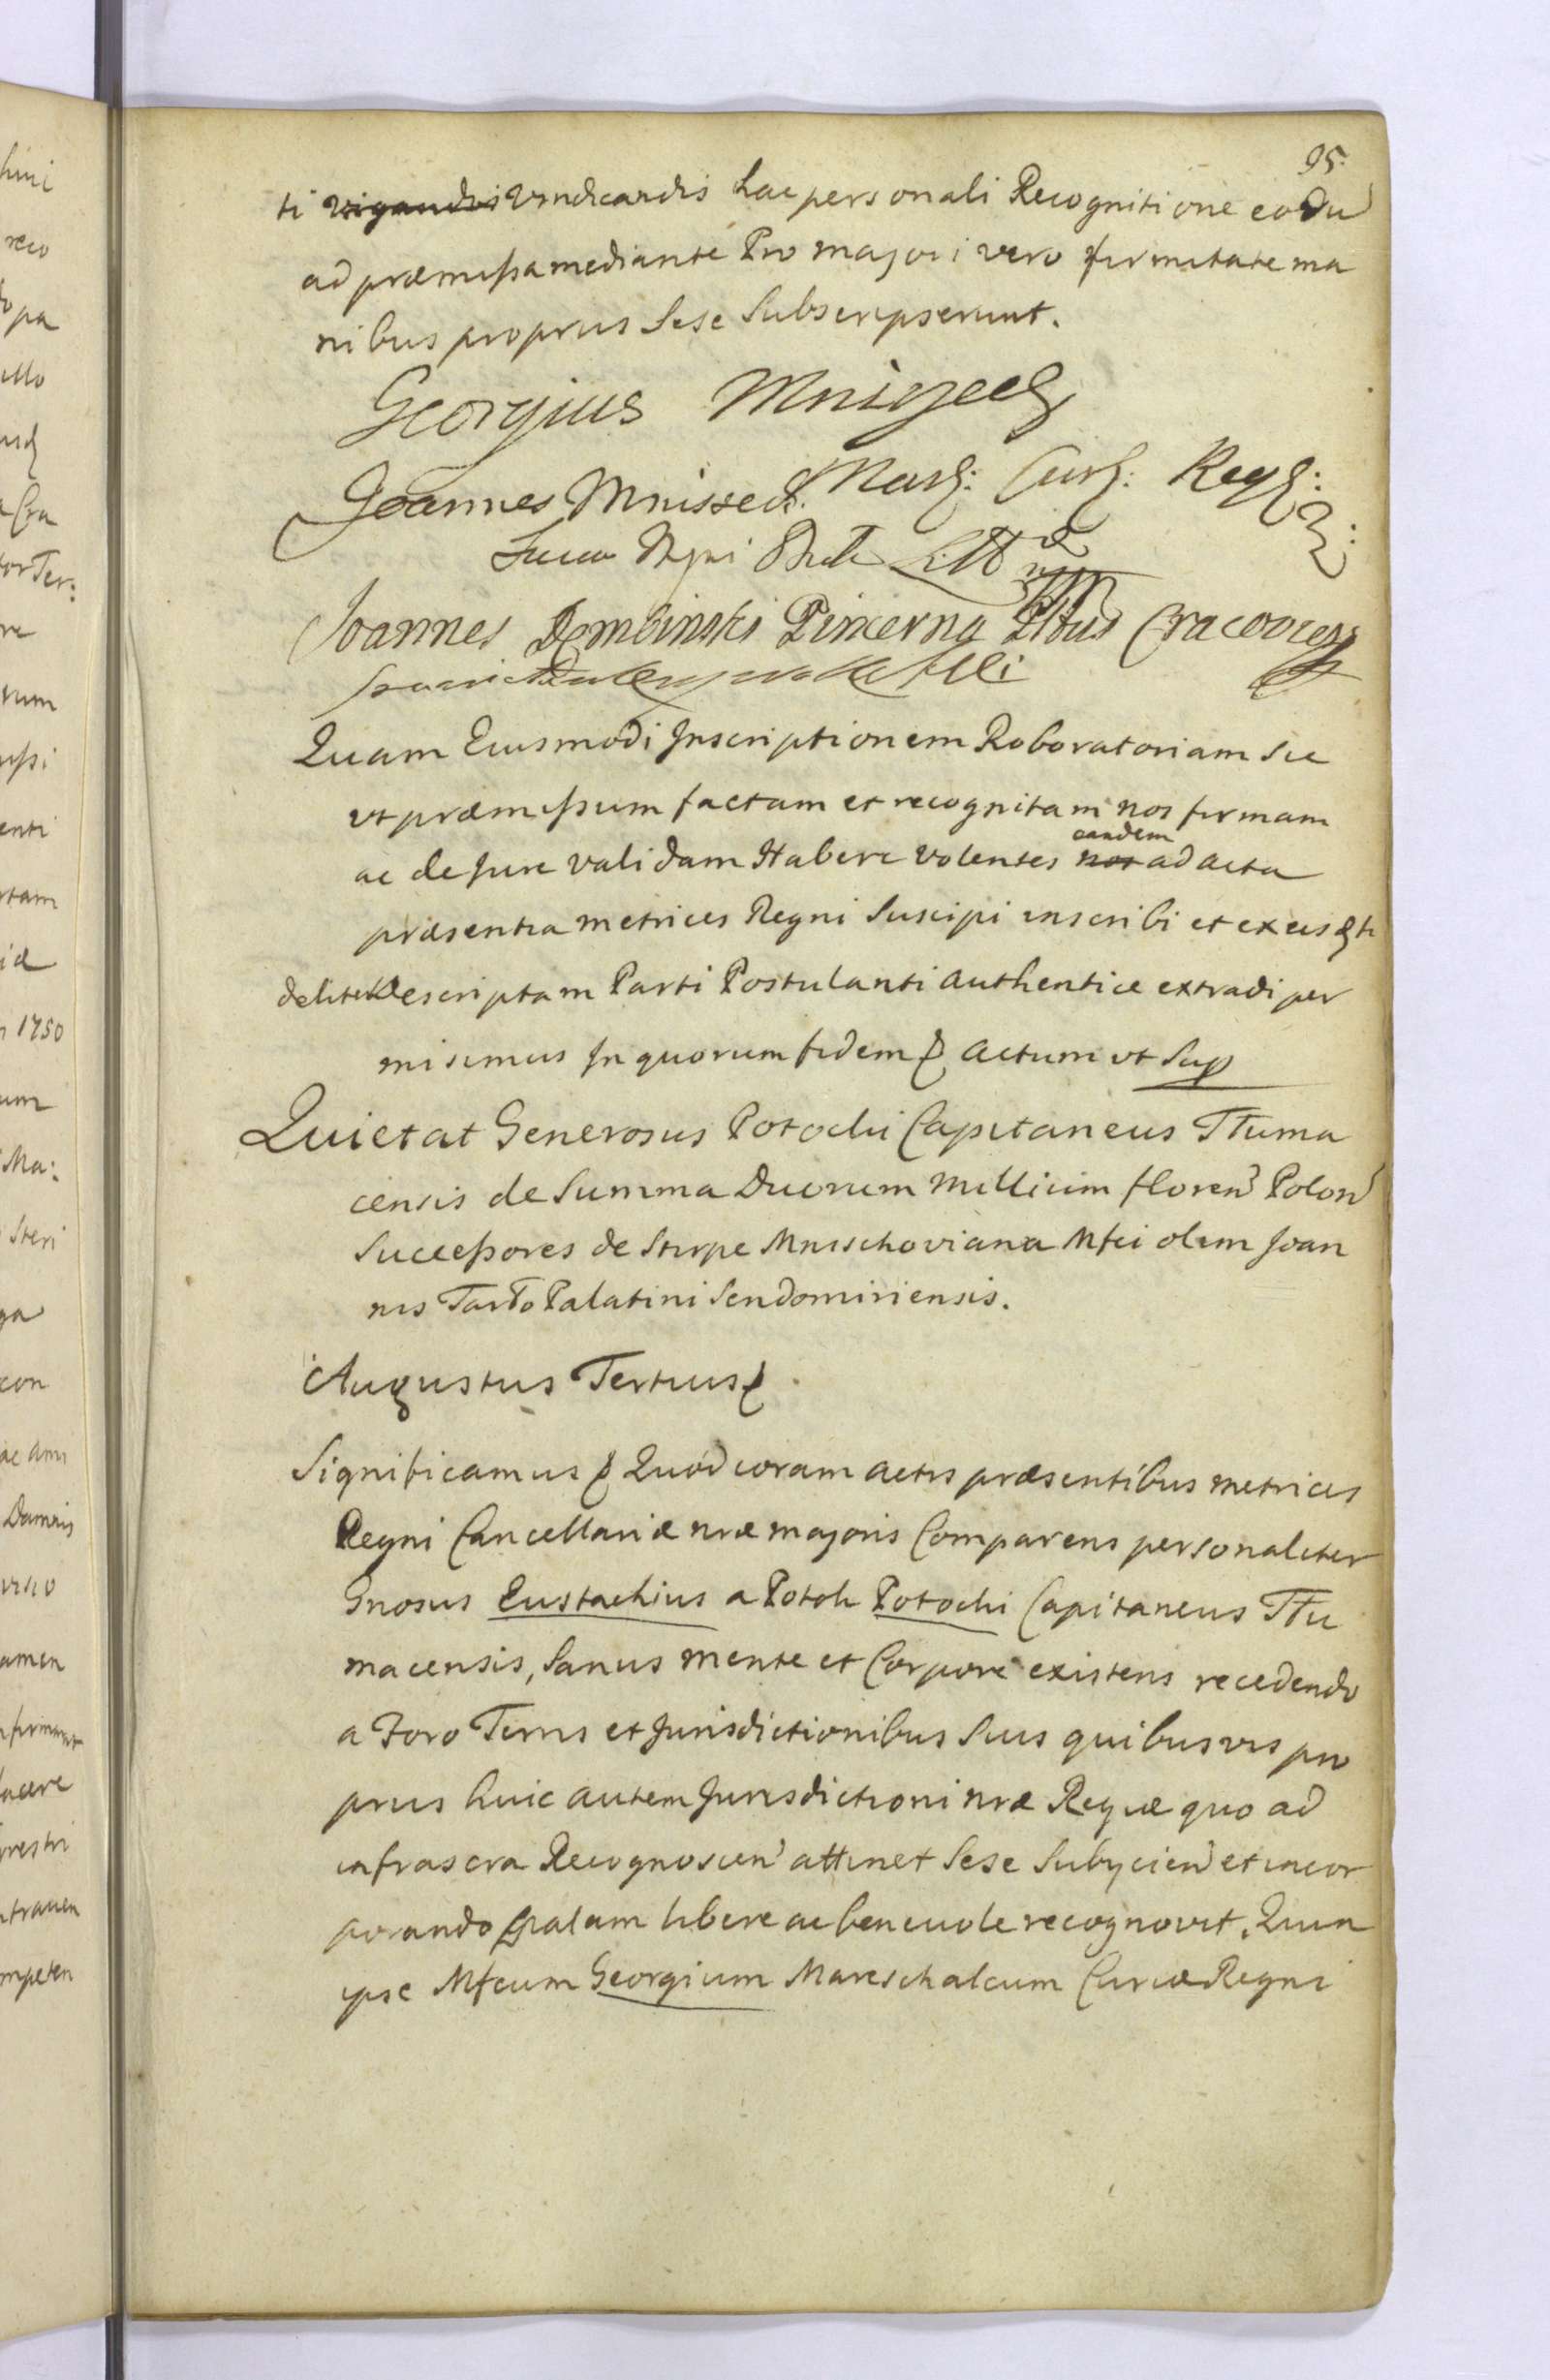 95.
ti vigandis Vindicandis hac personali Recognitione eordu
ad præmissa mediante Pro majori vero firmitate ma
nibus proprijs Sese Subscripserunt.
Georgius Mniszech
Marsz: Curiæ: Regni:
Joannes Mniszech
Succa Regni Duc Litt
Joannes Dembinski Pincerna Pltus Cracovien
Quam Eiusmodi Inscriptionem Roboratoriam sic
ut præmissum factam et recognitam nos firmam
ac de Jure validam Habere volentes nos eandem ad acta
præsentia metrices Regni Suscipi inscribi et ex eis fi
deliter Descriptam Parti Postulanti authentice extradi per
misimus In quorum fidem & Actum ut Sup
Quietat Generosus Potocki Capitaneus Tłuma
censis de Summa Duorum Millium floren Polon
Successores de Stirpe Mnischoviana Mfci olim Joan
nis Tarło Palatini Sendomiriensis.
Augustus Tertius &
Significamus & Quod coram actis præsentibus metrices
Regni Cancellariæ nræ majoris Comparens personaliter
Gnosus Eustachius a Potok Potocki Capitaneus Tłu
macensis, Sanus mente et Corpore existens recedendo
a Foro Terris et Jurisdictionibus Suis quibusvis pro
prijs huic autem Jurisdictioni nræ Regiæ quo ad
infrascra Recognoscen attinet Sese Subijcien et incor
porando palam libere ac benevole recognovit. Quia
ipse Mfcum Georgium Mareschalcum Curiæ Regni